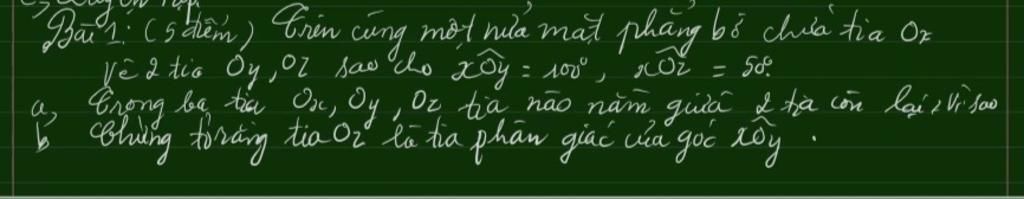 Bài 1: (5 điểm) Trên cùng một nửa mặt phẳng bờ chứa tia Ox
Vẽ 2 tia Oy, Oz sao cho xÔy = 100°, xÔz = 50°.
a, Trong ba tia Ox, Oy, Oz tia nào nằm giữa 2 tia còn lại? Vì sao
b Chứng tỏ rằng tia Oz là tia phân giác của góc xÔy.